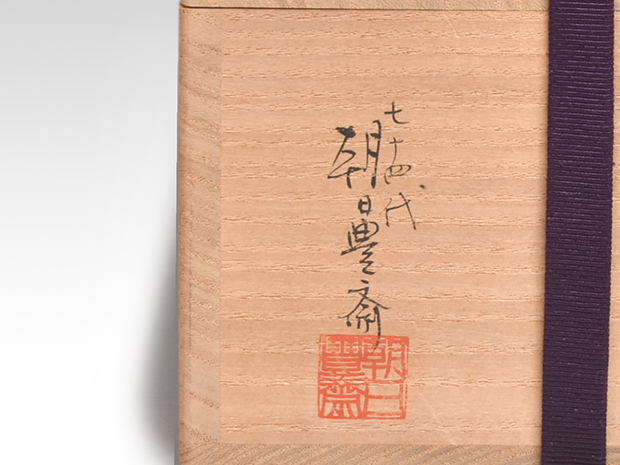 七十四代
朝日豊斎
朝日
豊齋